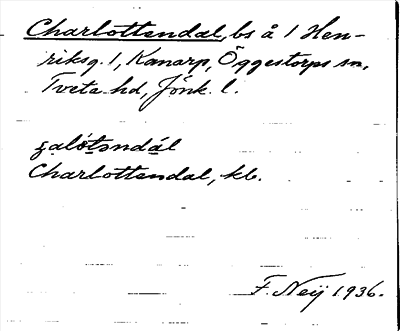 Charlottendal, bs å 1 Hen-
riksg. 1, Kanarp, Öggestorps sn,
Tveta hd, Jönk. l.
ʂalótəndál
Charlottendal, kb.
F. Neij 1936.